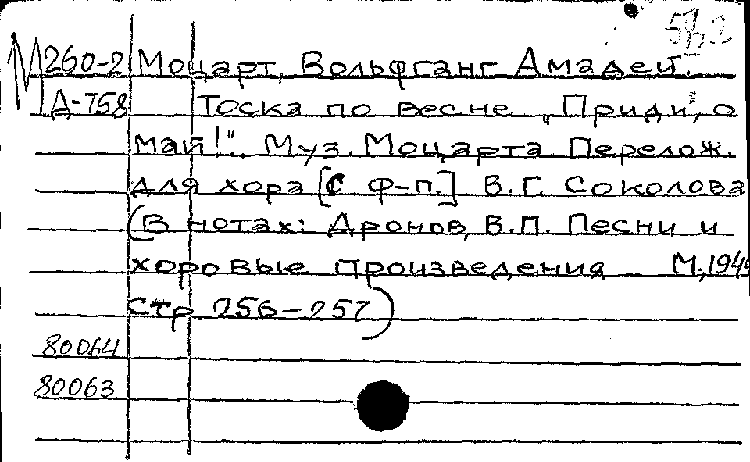 М260-2 Моцарт, Вольфганг Амадей.
Д-758 Тоска по весне „Приди, о
май!". Муз. Моцарта Перелож.
для хора [с ф-п.] В.Г. Соколова
(В нотах: Дронов, В.П. Песни и
хоровые произведения М, 1949
стр 256-257)
80064
80063